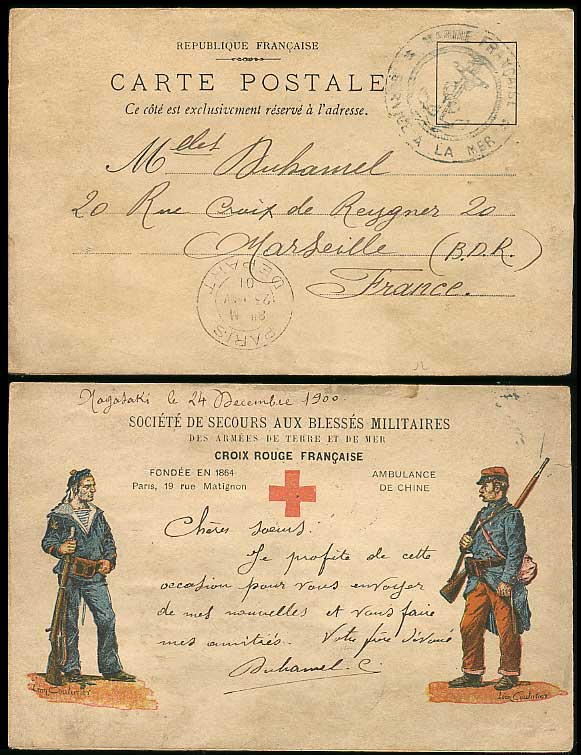 REPUBLIQUE FRANÇAISE
CARTE POSTALE
Ce côté est exclusivement réservé à l'adresse.
MARINE FRANÇAISE
SERVICE A LA MER
Melles Duhamel
20 Rue Croix de Reygner 20
Marseille (B.D.R)
France.
PARIS
8E M
01
DEPART
Nagasaki le 24 Décembre 1900
SOCIÉTÉ DE SECOURS AUX BLESSÉS MILITAIRES
DES ARMÉES DE TERRE ET DE MER
CROIX ROUGE FRANÇAISE
FONDÉE EN 1864
Paris, 19 rue Matignon
AMBULANCE
DE CHINE
Chères soeurs
Je profite de cette
occasion pour vous envoyer
de mes nouvelles et vous faire
mes amitiés. Votre frère dévoué
Duhamel. C.
Léon Couturier
Léon Couturier